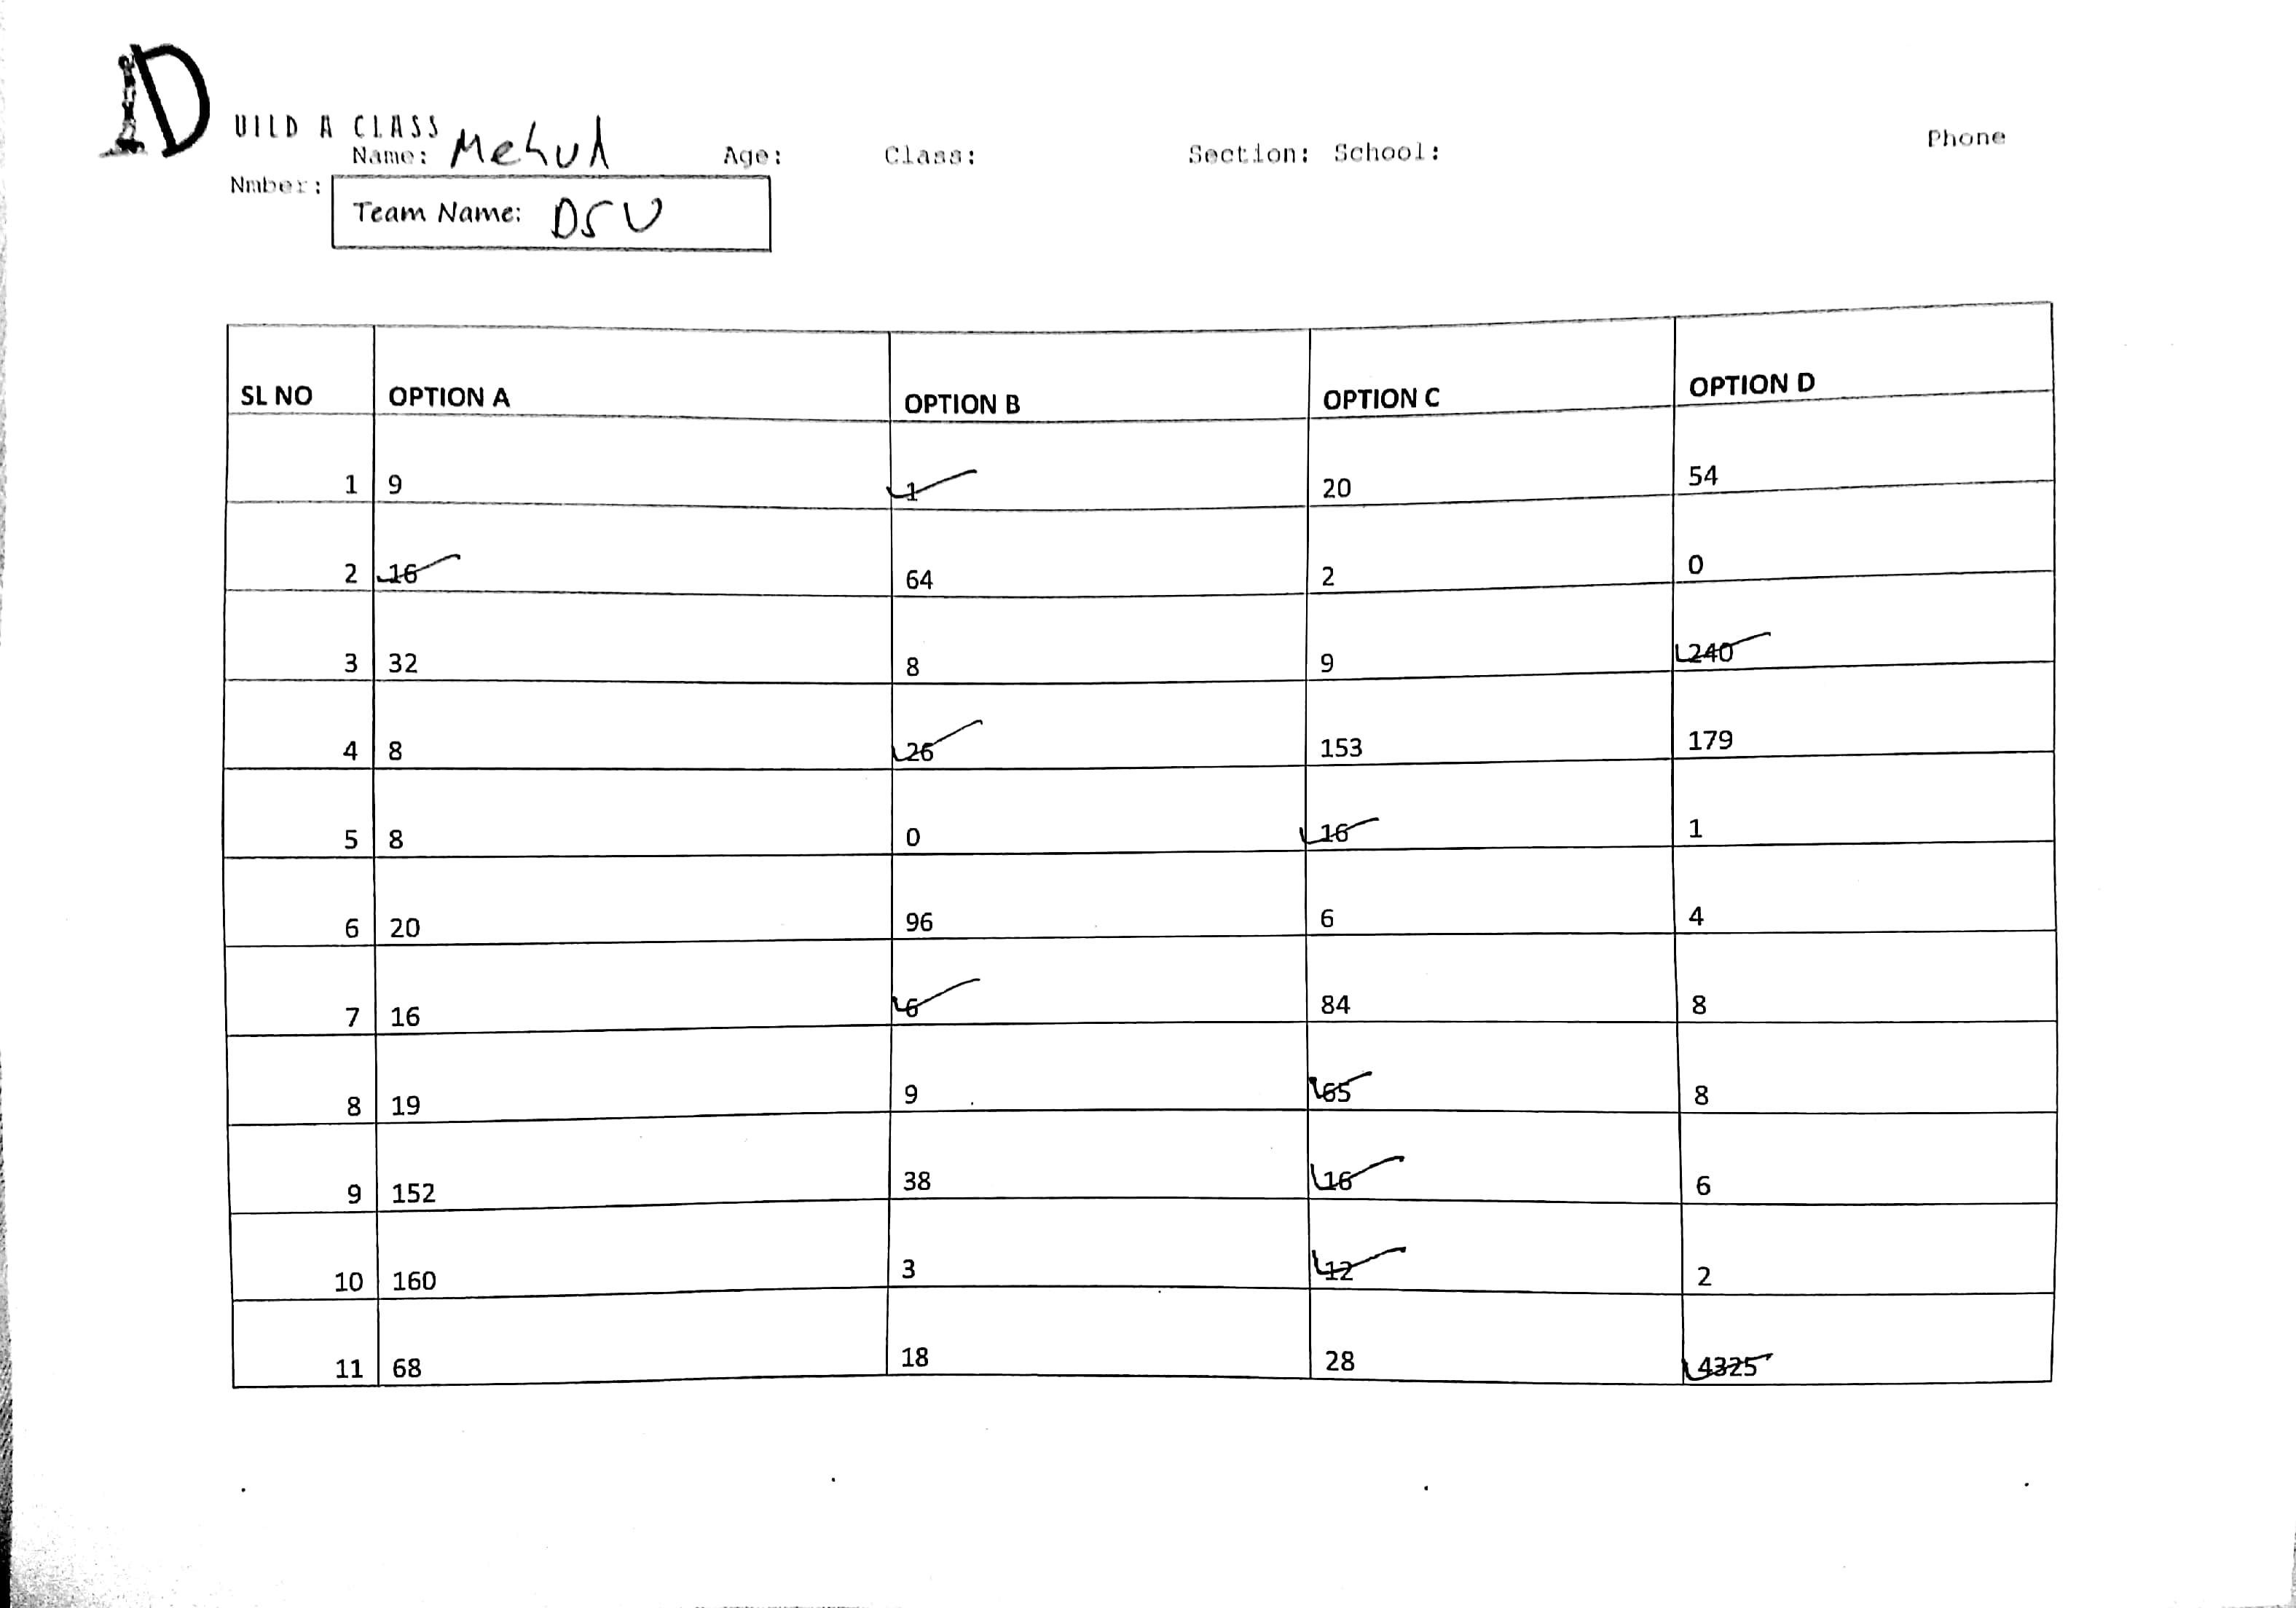 D
UILD A CLASS
Name: Mehul Age: Class: Section: School: Phone
Nmber:
Team Name: DSU
SL NO OPTION A OPTION B OPTION C OPTION D
1 9 1 20 54
2 16 64 2 0
3 32 8 9 240
4 8 26 153 179
5 8 0 16 1
6 20 96 6 4
7 16 6 84 8
8 19 9 65 8
9 152 38 16 6
10 160 3 12 2
11 68 18 28 4325